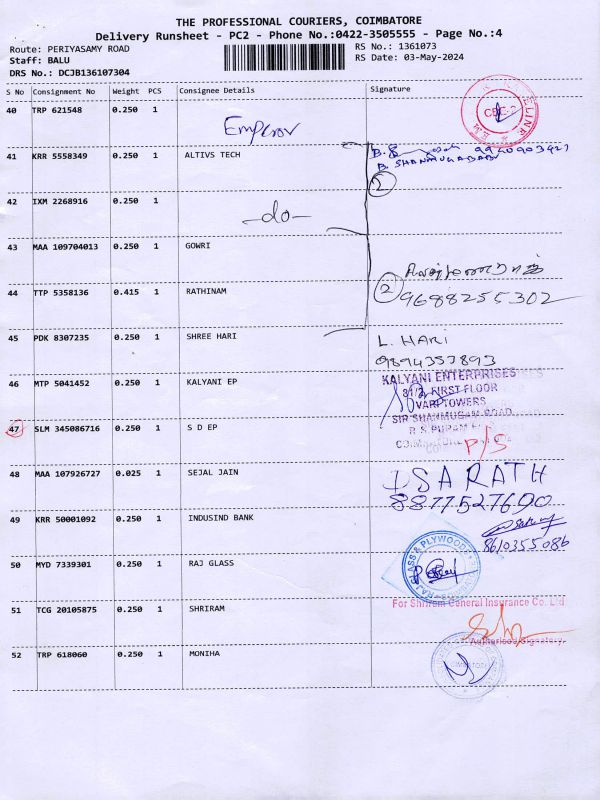 THE PROFESSIONAL COURIERS, COIMBATORE
Delivery Runsheet - PC2 - Phone No.:0422-3505555 - Page No.:4
Route: PERIYASAMY ROAD
Staff: BALU
DRS No.: DCJB136107304
RS No.: 1361073
RS Date: 03-May-2024
S No Consignment No Weight PCS Consignee Details Signature
40 TRP 621548 0.250 1
Emperor
41 KRR 5558349 0.250 1 ALTIVS TECH
B. SHANMUGABABU
2
42 IXM 2268916 0.250 1
-do-
43 MAA 109704013 0.250 1 GOWRI
44 TTP 5358136 0.415 1 RATHINAM
2 9688255302
45 PDK 8307235 0.250 1 SHREE HARI L. HARI
9894353893
46 MTP 5041452 0.250 1 KALYANI EP
KALYANI ENTERPRISES
FIRST FLOOR
VARP TOWERS
SIR SHANMUGAM ROAD
R S PURAM
47 SLM 345086716 0.250 1 S D EP
P/S
48 MAA 107926727 0.025 1 SEJAL JAIN
SARATH
8877527690
49 KRR 50001092 0.250 1 INDUSIND BANK
8610355086
50 MYD 7339301 0.250 1 RAJ GLASS
RAJ GLASS & PLYWOOD
51 TCG 20105875 0.250 1 SHRIRAM
For Shriram General Insurance Co. Ltd
Authorised Signatory
52 TRP 618060 0.250 1 MONIHA